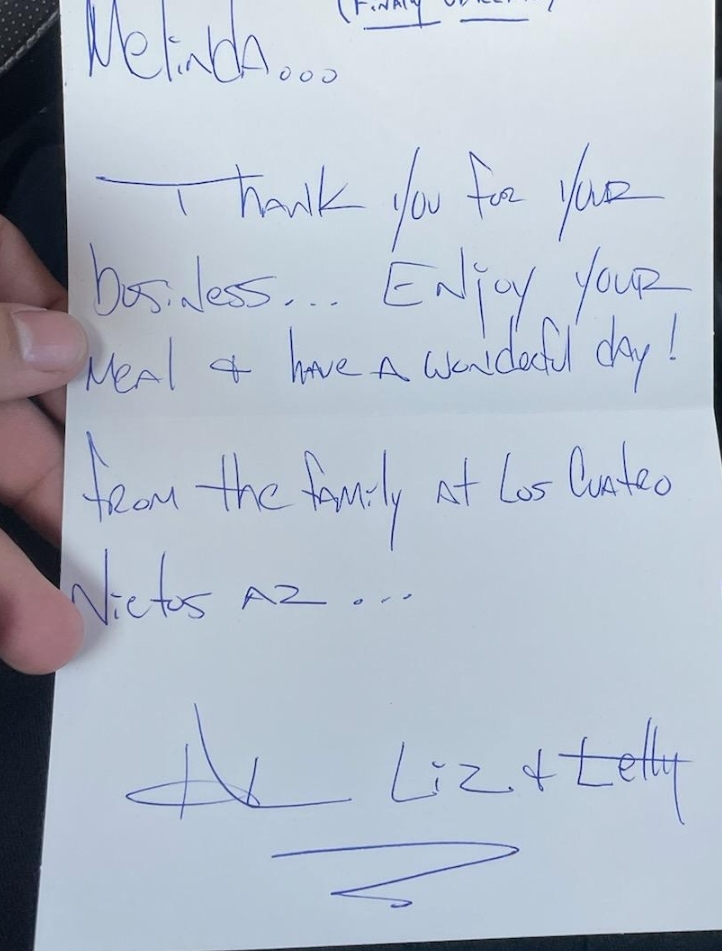 (Finaly
Melinda...
Thank you for your
business... Enjoy your
meal & have a wondeful day!
from the family at Los Cuatro
Nietos AZ ...
Liz &